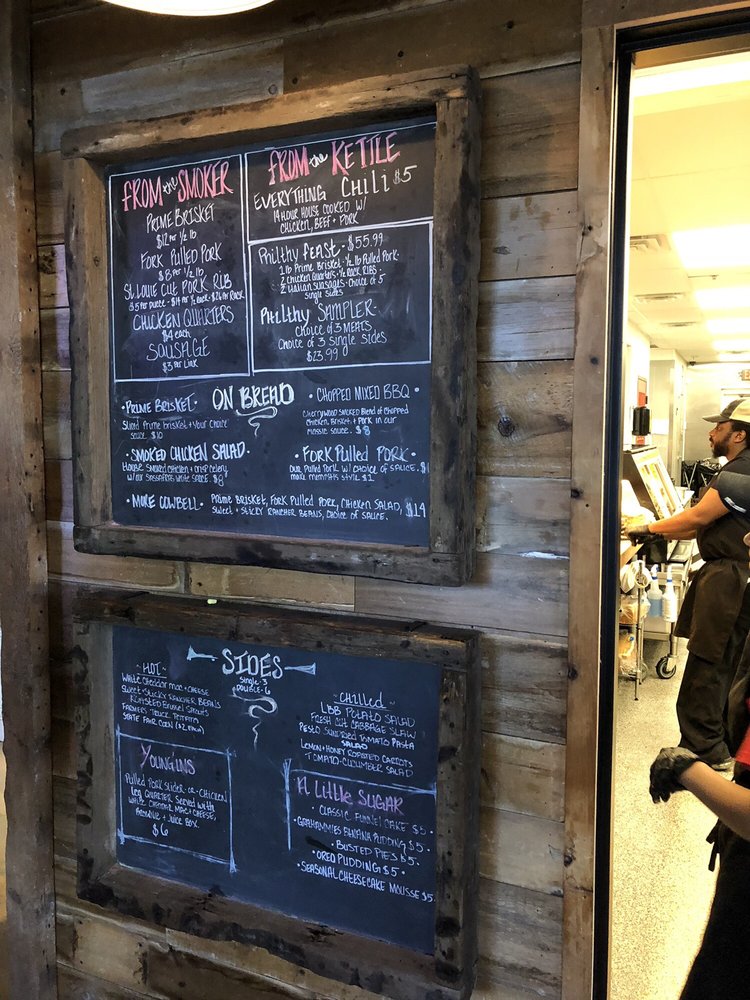 FROM the SMOKER
PRIME BRISKET
$12 per ½ lb
FORK Pulled PORK
$8 per ½ lb
St. Louie Cut PORK RIB
CHICKEN QUARTERS
$4 each
SAUSAGE
$3 per Link
FROM the KETTLE
EVERYTHING Chili $5
14 HOUR HOUSE COOKED W/
CHICKEN, BEEF + PORK
Philthy Feast - $55.99
1 lb Prime Brisket - ½ lb Pulled Pork -
2 Chicken Quarters - ½ Rack RIBS -
2 Italian Sausages - Choice of 5
Single Sides
Philthy SAMPLER -
Choice of 3 MEATS
Choice of 3 single sides
$23.99
ON BREAD
• PRIME BRISKET •
Sliced Prime brisket + your choice
sauce $10
• SMOKED CHICKEN SALAD •
House Smoked chicken + crisp celery
w/ our Sassafras white sauce. $8
• CHOPPED MIXED BBQ •
Cherrywood smoked Blend of chopped
chicken, Brisket + Pork in our
sauce. $8
• FORK Pulled PORK •
Our Pulled Pork w/ choice of sauce.
make memphis style $1
• MORE COWBELL • Prime Brisket, Fork Pulled Pork, Chicken Salad,
Sweet + Sticky Rancher Beans, Choice of Sauce. $14
SIDES
Single-3
Double-6
~ HOT ~
White Cheddar mac + cheese
Sweet + Sticky Rancher Beans
Roasted Brussel Sprouts
Farmers Truck Potato
State Fair Corn
~ Chilled ~
LBB Potato Salad
Fresh Cut Cabbage Slaw
Pesto Sundried Tomato Pasta
Salad
Lemon + Honey Roasted Carrots
Tomato-Cucumber Salad
YOUNGINS
Pulled Pork Slider -or- Chicken
Leg Quarter Served with
White Cheddar Mac + Cheese,
Brownie + Juice Box.
$6
A Little SUGAR
• Classic Funnel Cake $5 •
• Banana Pudding $5 •
• Busted Pies $5 •
• OREO PUDDING $5 •
• SEASONAL CHEESECAKE MOUSSE $5